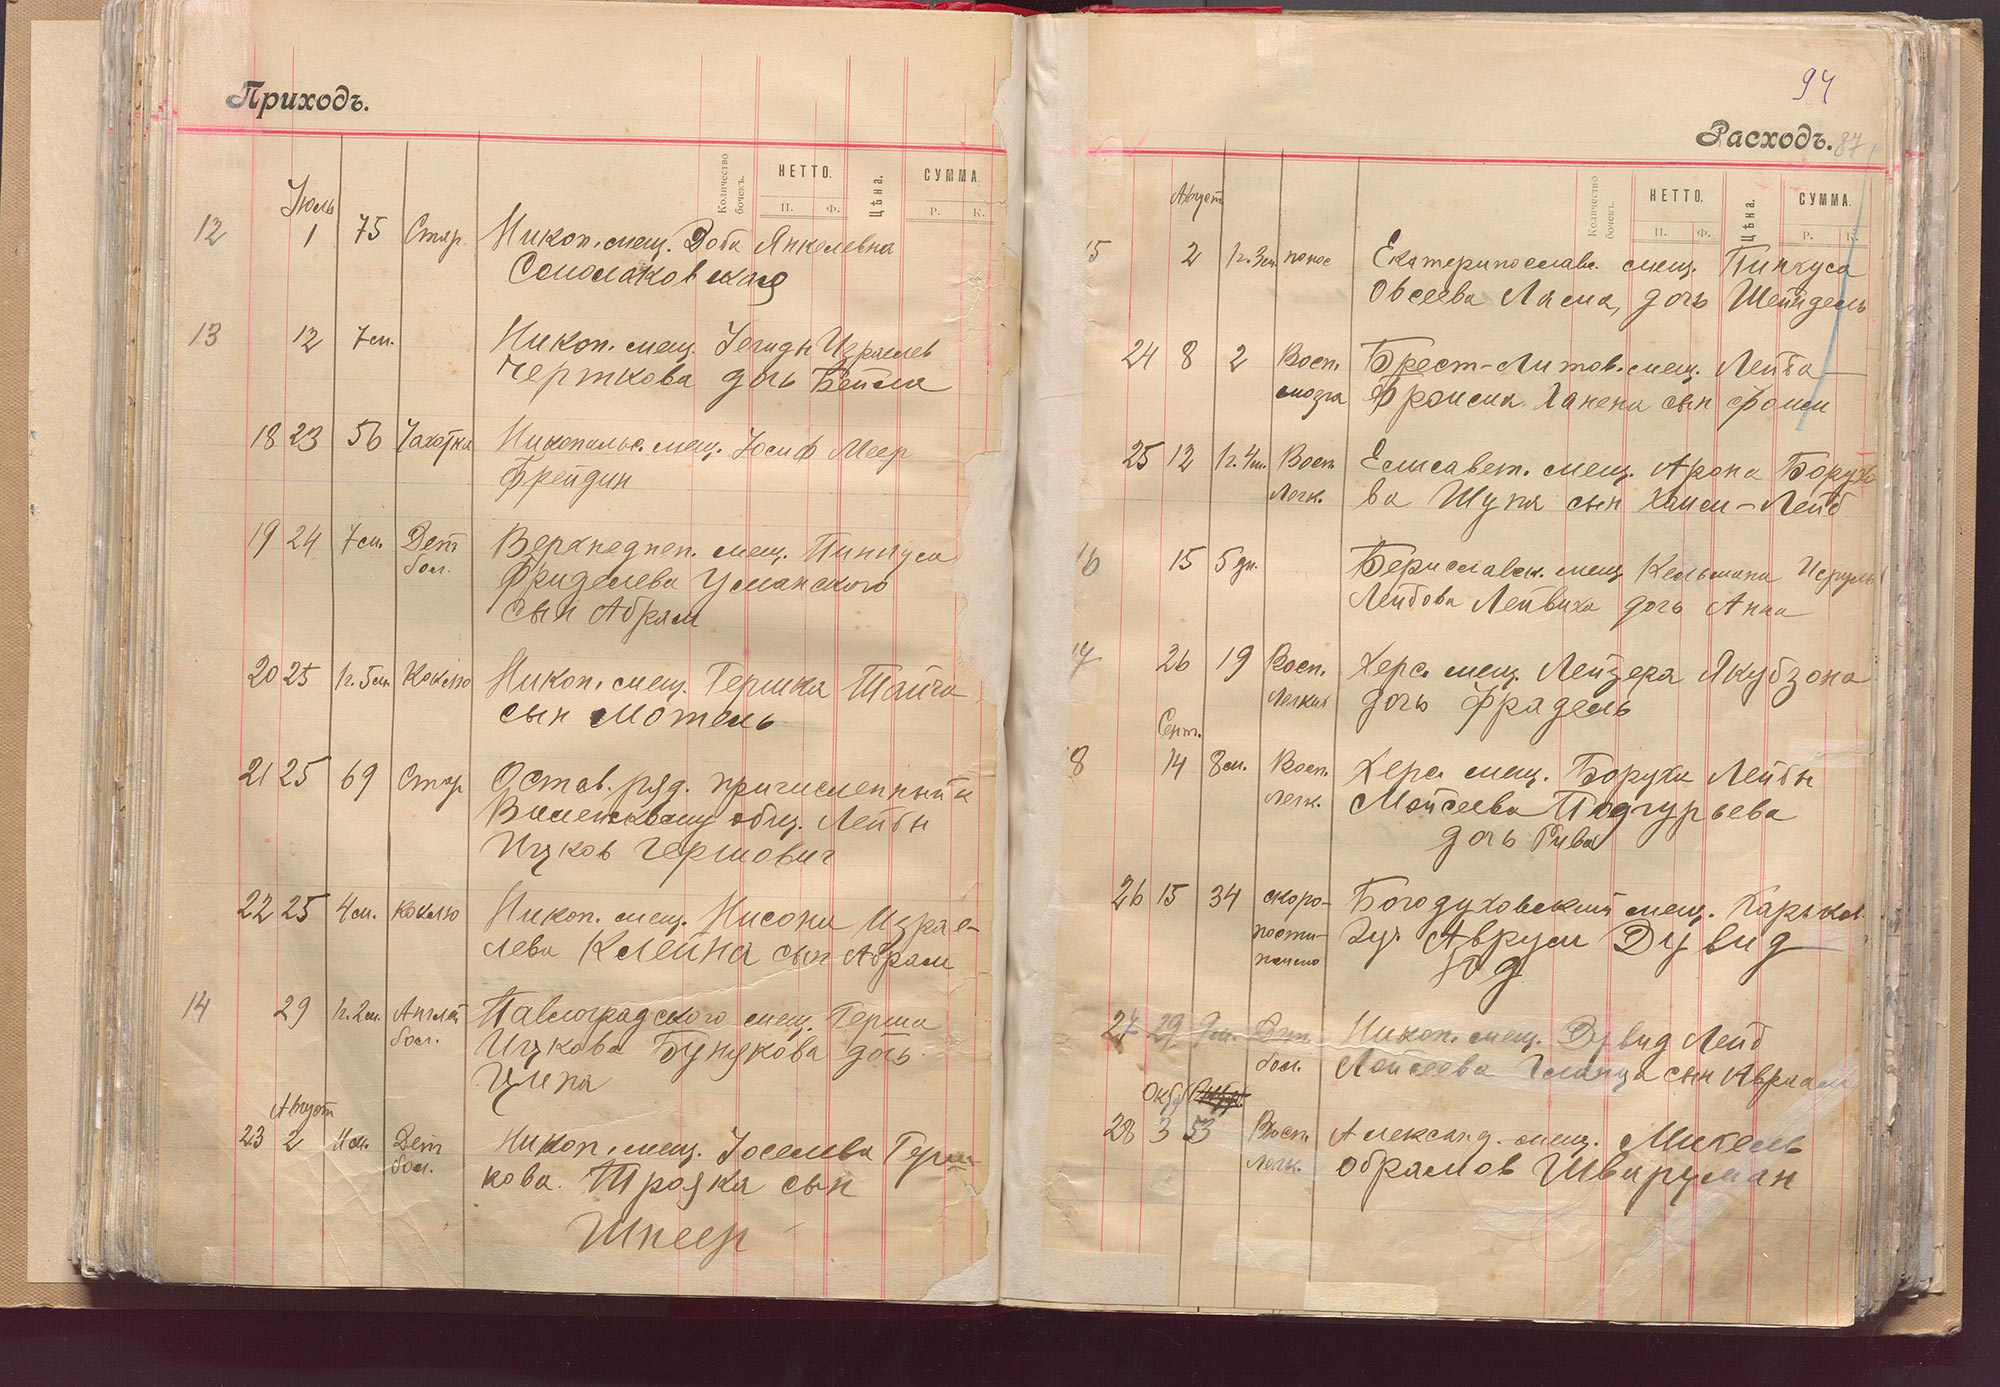 Приходъ.
Количество бочекъ.
НЕТТО.
П. Ф.
Цѣна.
СУММА.
Р. К.
Июль
12 1 75 Стар. Никоп. мещ. Доба Янкелевна
13 12 7 м. Никоп. мещ. Израилев
Черткова дочь Бейла
18 23 56 Чахотка Никопольс. мещ. Иосиф Меер
Фрейдин
19 24 7 м. Дет бол. Верхнеднеп. мещ. Пинкуса
Фриделева Уманского
сын Абрам
20 25 1 г. 5 м. Коклю Никоп. мещ. Гершка Тайча
сын Мотель
21 25 69 Стар Остав. ряд. причисленный к
общ. Лейбы
Ицков Гершович
22 25 4 м. Коклю Никоп. мещ. Нисона Израе-
лева Клейна сын Абрам
14 29 1 г. 2 м. Англий бол. Павлоградского мещ. Герша
Ицкова Бунякова дочь
Ципа
Август
23 2 11 м. Дет бол. Никоп. мещ. Иоселева Герш-
кова Трояка сын
Шнеер
94
Расходъ. 87
Количество бочекъ.
НЕТТО.
П. Ф.
Цѣна.
СУММА.
Р. К.
Август
15 2 1 г. 3 м. понос Екатеринославс. мещ. Пинкуса
Овсеева Ласа, дочь Шейндель
24 8 2 Восп. мозга Брест-Литов. мещ. Лейба-
Фроима сын Фоим
25 12 1 г. 4 м. Восп. Легк. Елисавет. мещ. Арона Борухо
ва Шупа сын Хаим-Лейб
16 15 5 дн. Бериславск. мещ. Кельмана
Лейбова Лейвиха дочь Анна
17 26 19 Восп. Легких Херс. мещ. Лейзера Якубзона
дочь Фрадель
Сент.
18 14 8 м. Восп. Легк. Херс. мещ. Боруха Лейбы
Мойсеева Подгурьева
дочь Рива
26 15 34 скоро-
пости-
жно Богодуховский мещ. Харьков.
губ. Аврум Дувид
Юд
27 29 9 м. Дет. бол. Никоп. мещ. Дувид Лейб
сын Авраам
Окт
28 3 53 Восп. Легк. Александ. мещ. Михель
Обрамов Шварцман